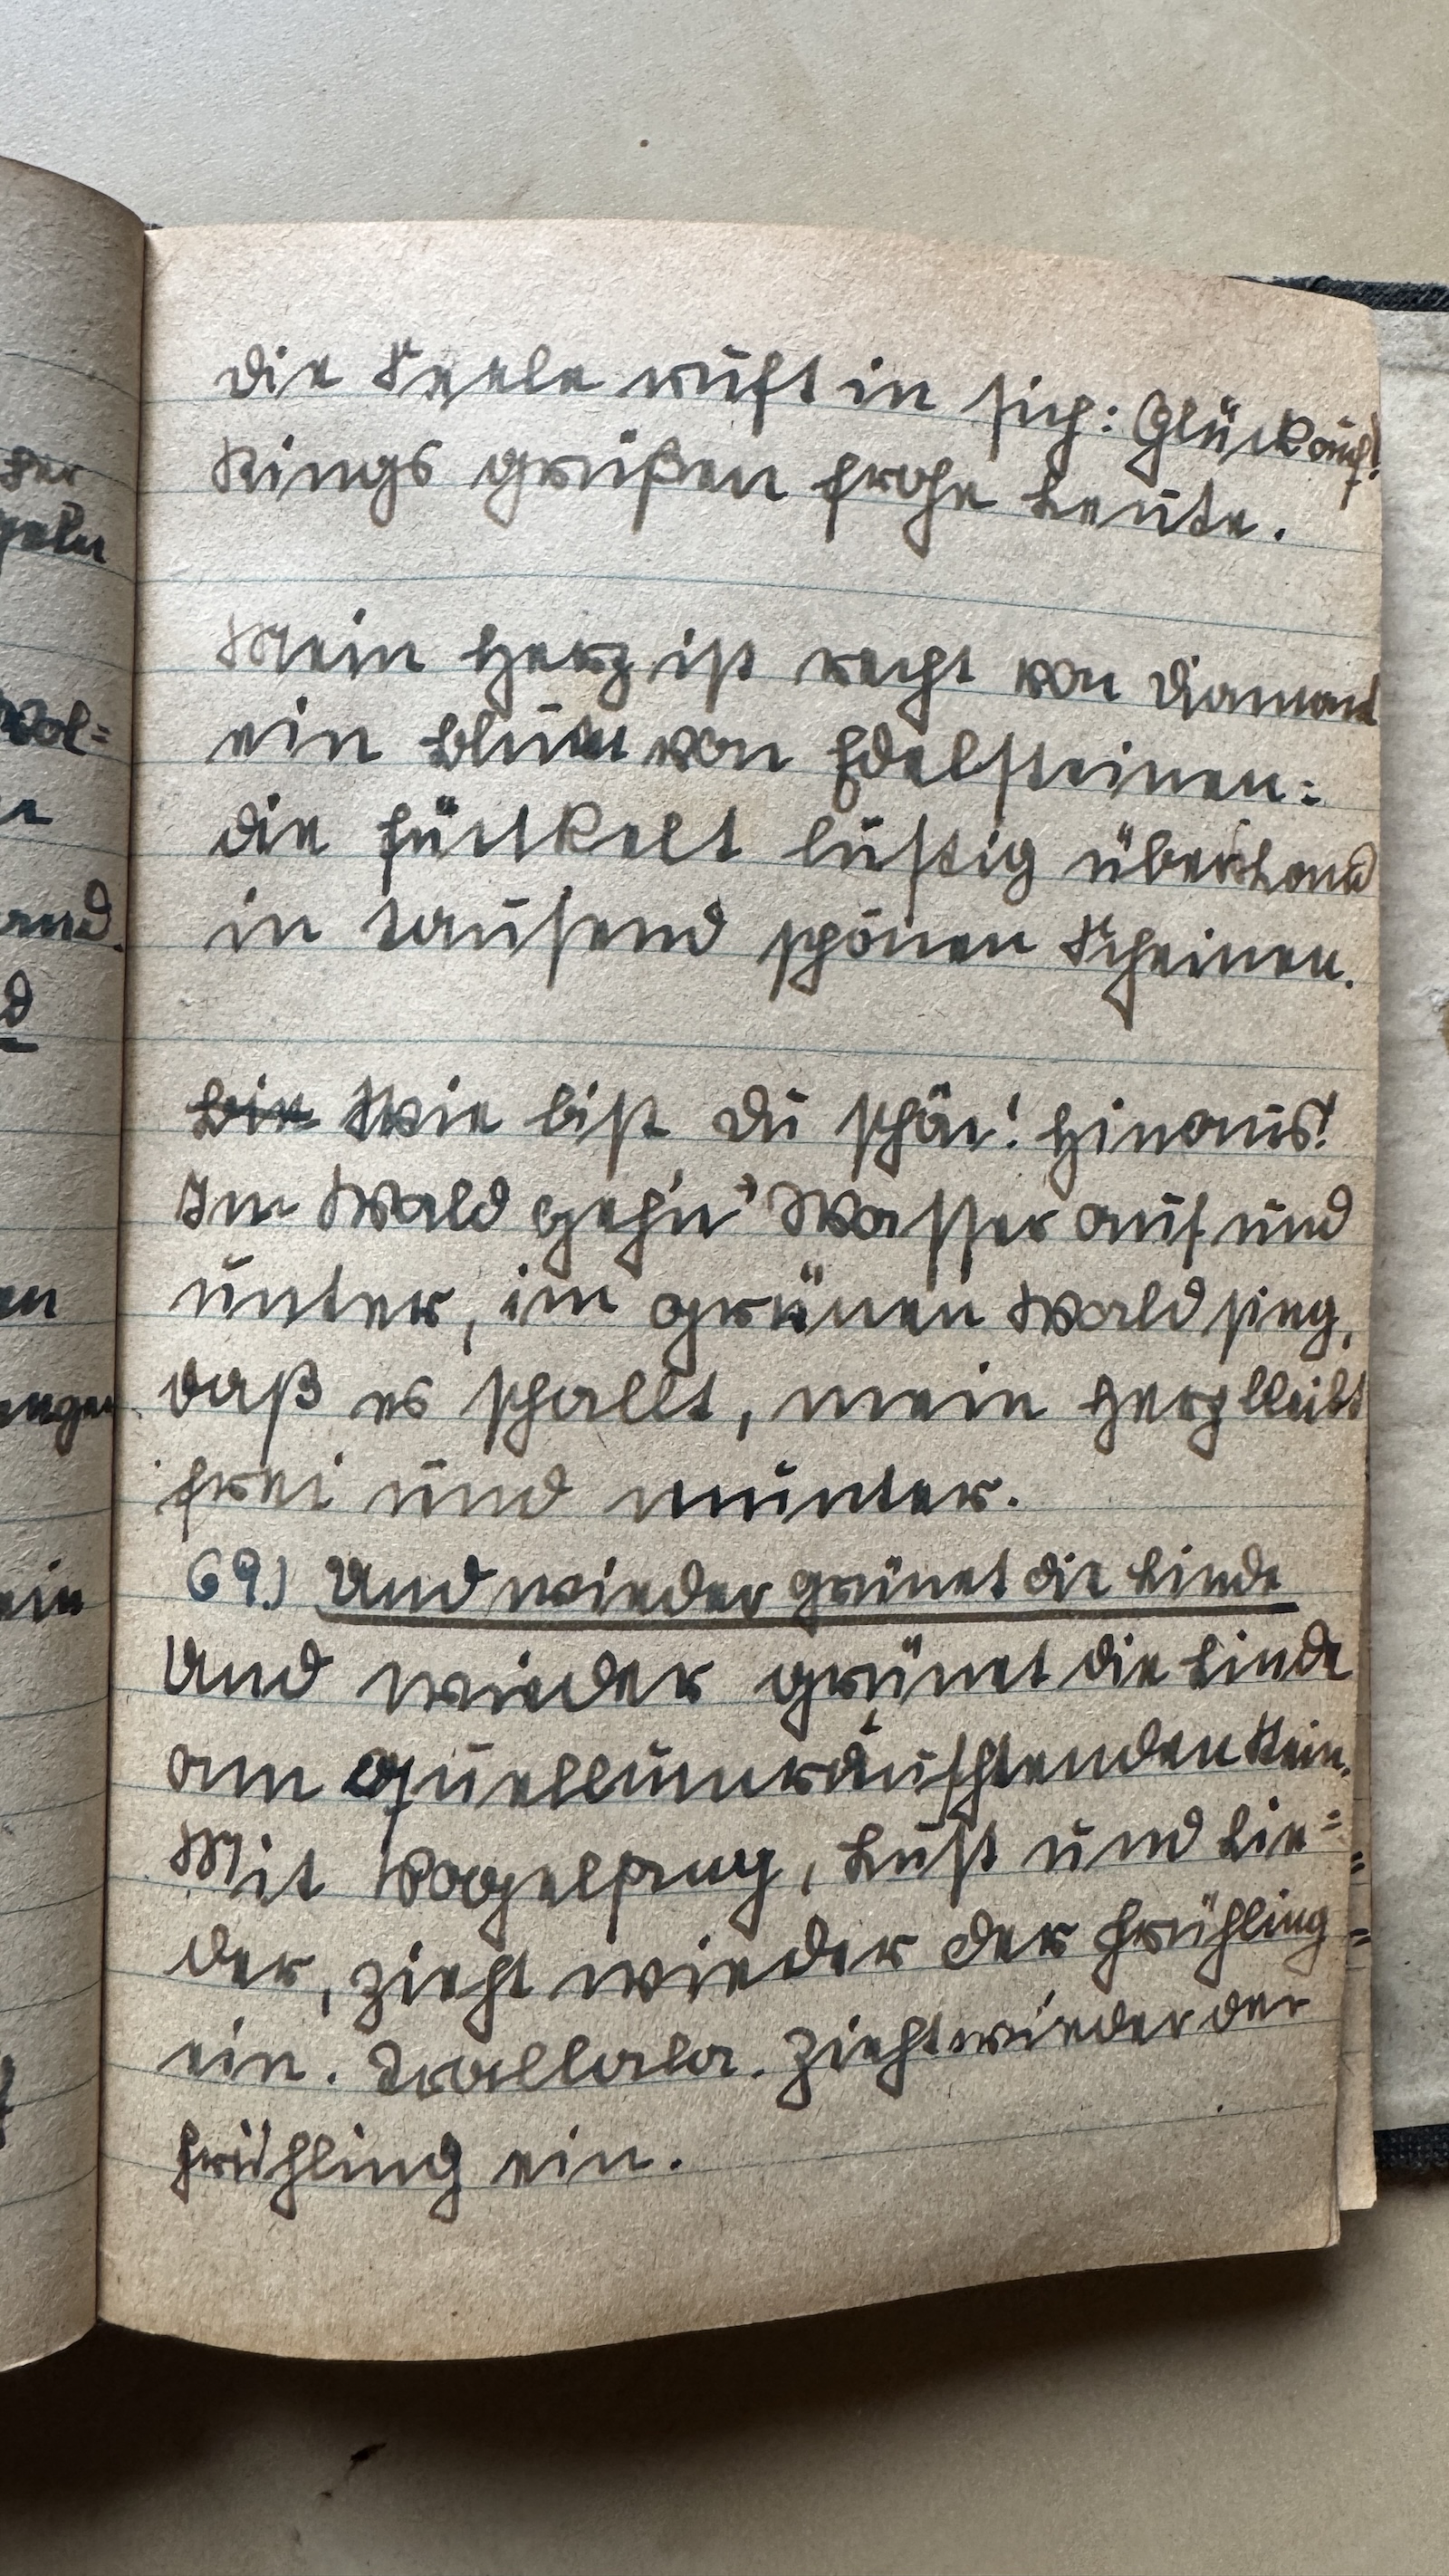 die Seele ruft in sich: Glück auf!
Rings grüßen frohe Leute.
Mein Herz ist recht von Diamant
ein Blum von Edelsteinen:
die funkelt lustig übers Land
in tausend schönen Scheinen.
Wie bist du schön! Hinaus!
Im Wald gehn Wasser auf und
unter, im grünen Wald sing,
daß es schallt, mein Herz bleibt
frei und munter.
69.) Und wieder grünet die Linde
Und wieder grünet die Linde
am quellumrauschtenden
Mit Vogelsang, Lust und Lie=
der, zieht wieder der Frühling
ein. Trallala. Zieht wieder der
Frühling ein.